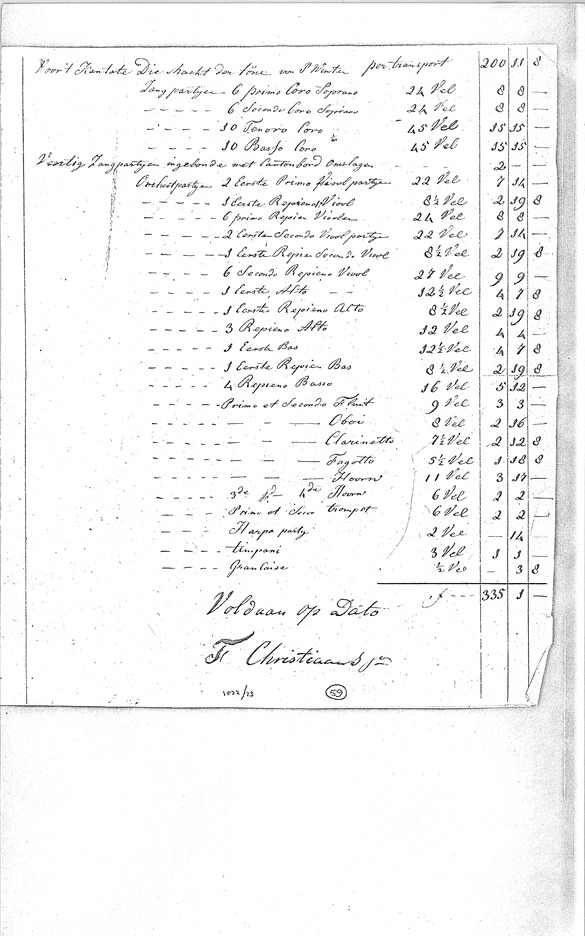 Voor't Kantate Die Macht der Töne von P Winter per transport 200 11 8
Zangpartyen 6 primo Coro Soprano 24 Vel 8 8 —
- - - - 6 Secondo Coro Soprano 24 Vel 8 8 —
- - - - 10 Tenoro Coro 45 Vel 15 15 —
- - - - 10 Basso Coro 45 Vel 15 15 —
Veertig Zangpartyen ingebonde met Cantonbord Omslagen - - 2 — —
Orchestpartyen 2 Eerste Primo Viool partyen 22 Vel 7 14 —
- - - - 1 Eerste Repieno Viool 8½ Vel 2 19 8
- - - - 6 primo Repien Violen 24 Vel 8 8 —
- - - - 2 Eerste Secondo Viool partyen 22 Vel 7 14 —
- - - - 1 Eerste Repien Secondo Viool 8½ Vel 2 19 8
- - - - 6 Secondo Repieno Viool 27 Vel 9 9 —
- - - - 1 Eerste Alto - - 12½ Vel 4 7 8
- - - - 1 Eerste Repieno Alto 8½ Vel 2 19 8
- - - - 3 Repieno Alto 12 Vel 4 4 —
- - - - 1 Eerste Bas 12½ Vel 4 7 8
- - - - 1 Eerste Repien Bas 8½ Vel 2 19 8
- - - - 4 Repieno Basso 16 Vel 5 12 —
- - - - Primo et Secondo Fluit 9 Vel 3 3 —
- - - - — — Oboi 8 Vel 2 16 —
- - - - — — Clarinetto 7½ Vel 2 12 8
- - - - — — Fagotto 5½ Vel 1 18 8
- - - - — — Hoorn 11 Vel 3 17 —
- - - - 3de & 4de Hoorn 6 Vel 2 2 —
- - - - Primo et Seco trompet 6 Vel 2 2 —
- - - - Harpa party 2 Vel — 14 —
- - - - timpani 3 Vel 1 1 —
- - - - Grancaise ½ Vel — 3 8
f - - - 335 1 —
Voldaan op Dato
Fr Christiaans jr
1022/23 59